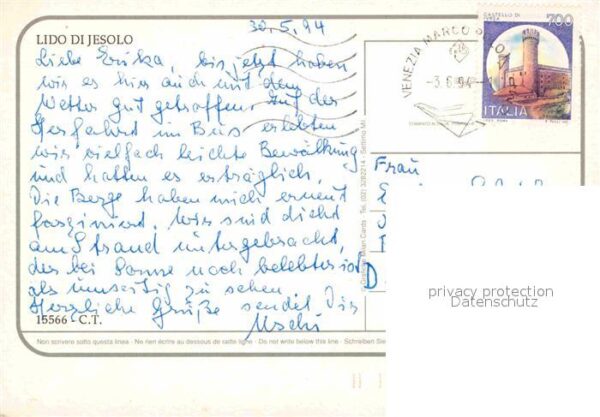 30.5.94
LIDO DI JESOLO
Liebe Erika, bis jetzt haben
wir es hier auch mit dem
Wetter gut getroffen. Auf der
Herfahrt im Bus erlebten
wir vielfach leichte Bewölkung
und hatten es erträglich.
Die Berge haben mich erneut
fasziniert. Wir sind dicht
am Strand untergebracht,
der bei Sonne noch belebter ist
als umseitig zu sehen.
Herzliche Grüße sendet Dir
Uschi
15566 - C.T.
Non scrivere sotto questa linea - Ne rien écrire au dessous de cette ligne - Do not write below this line - Schreiben Sie
VENEZIA MARCO
-3.6.94
CASTELLO DI
700
ITALIA
Frau
D
privacy protection
Datenschutz